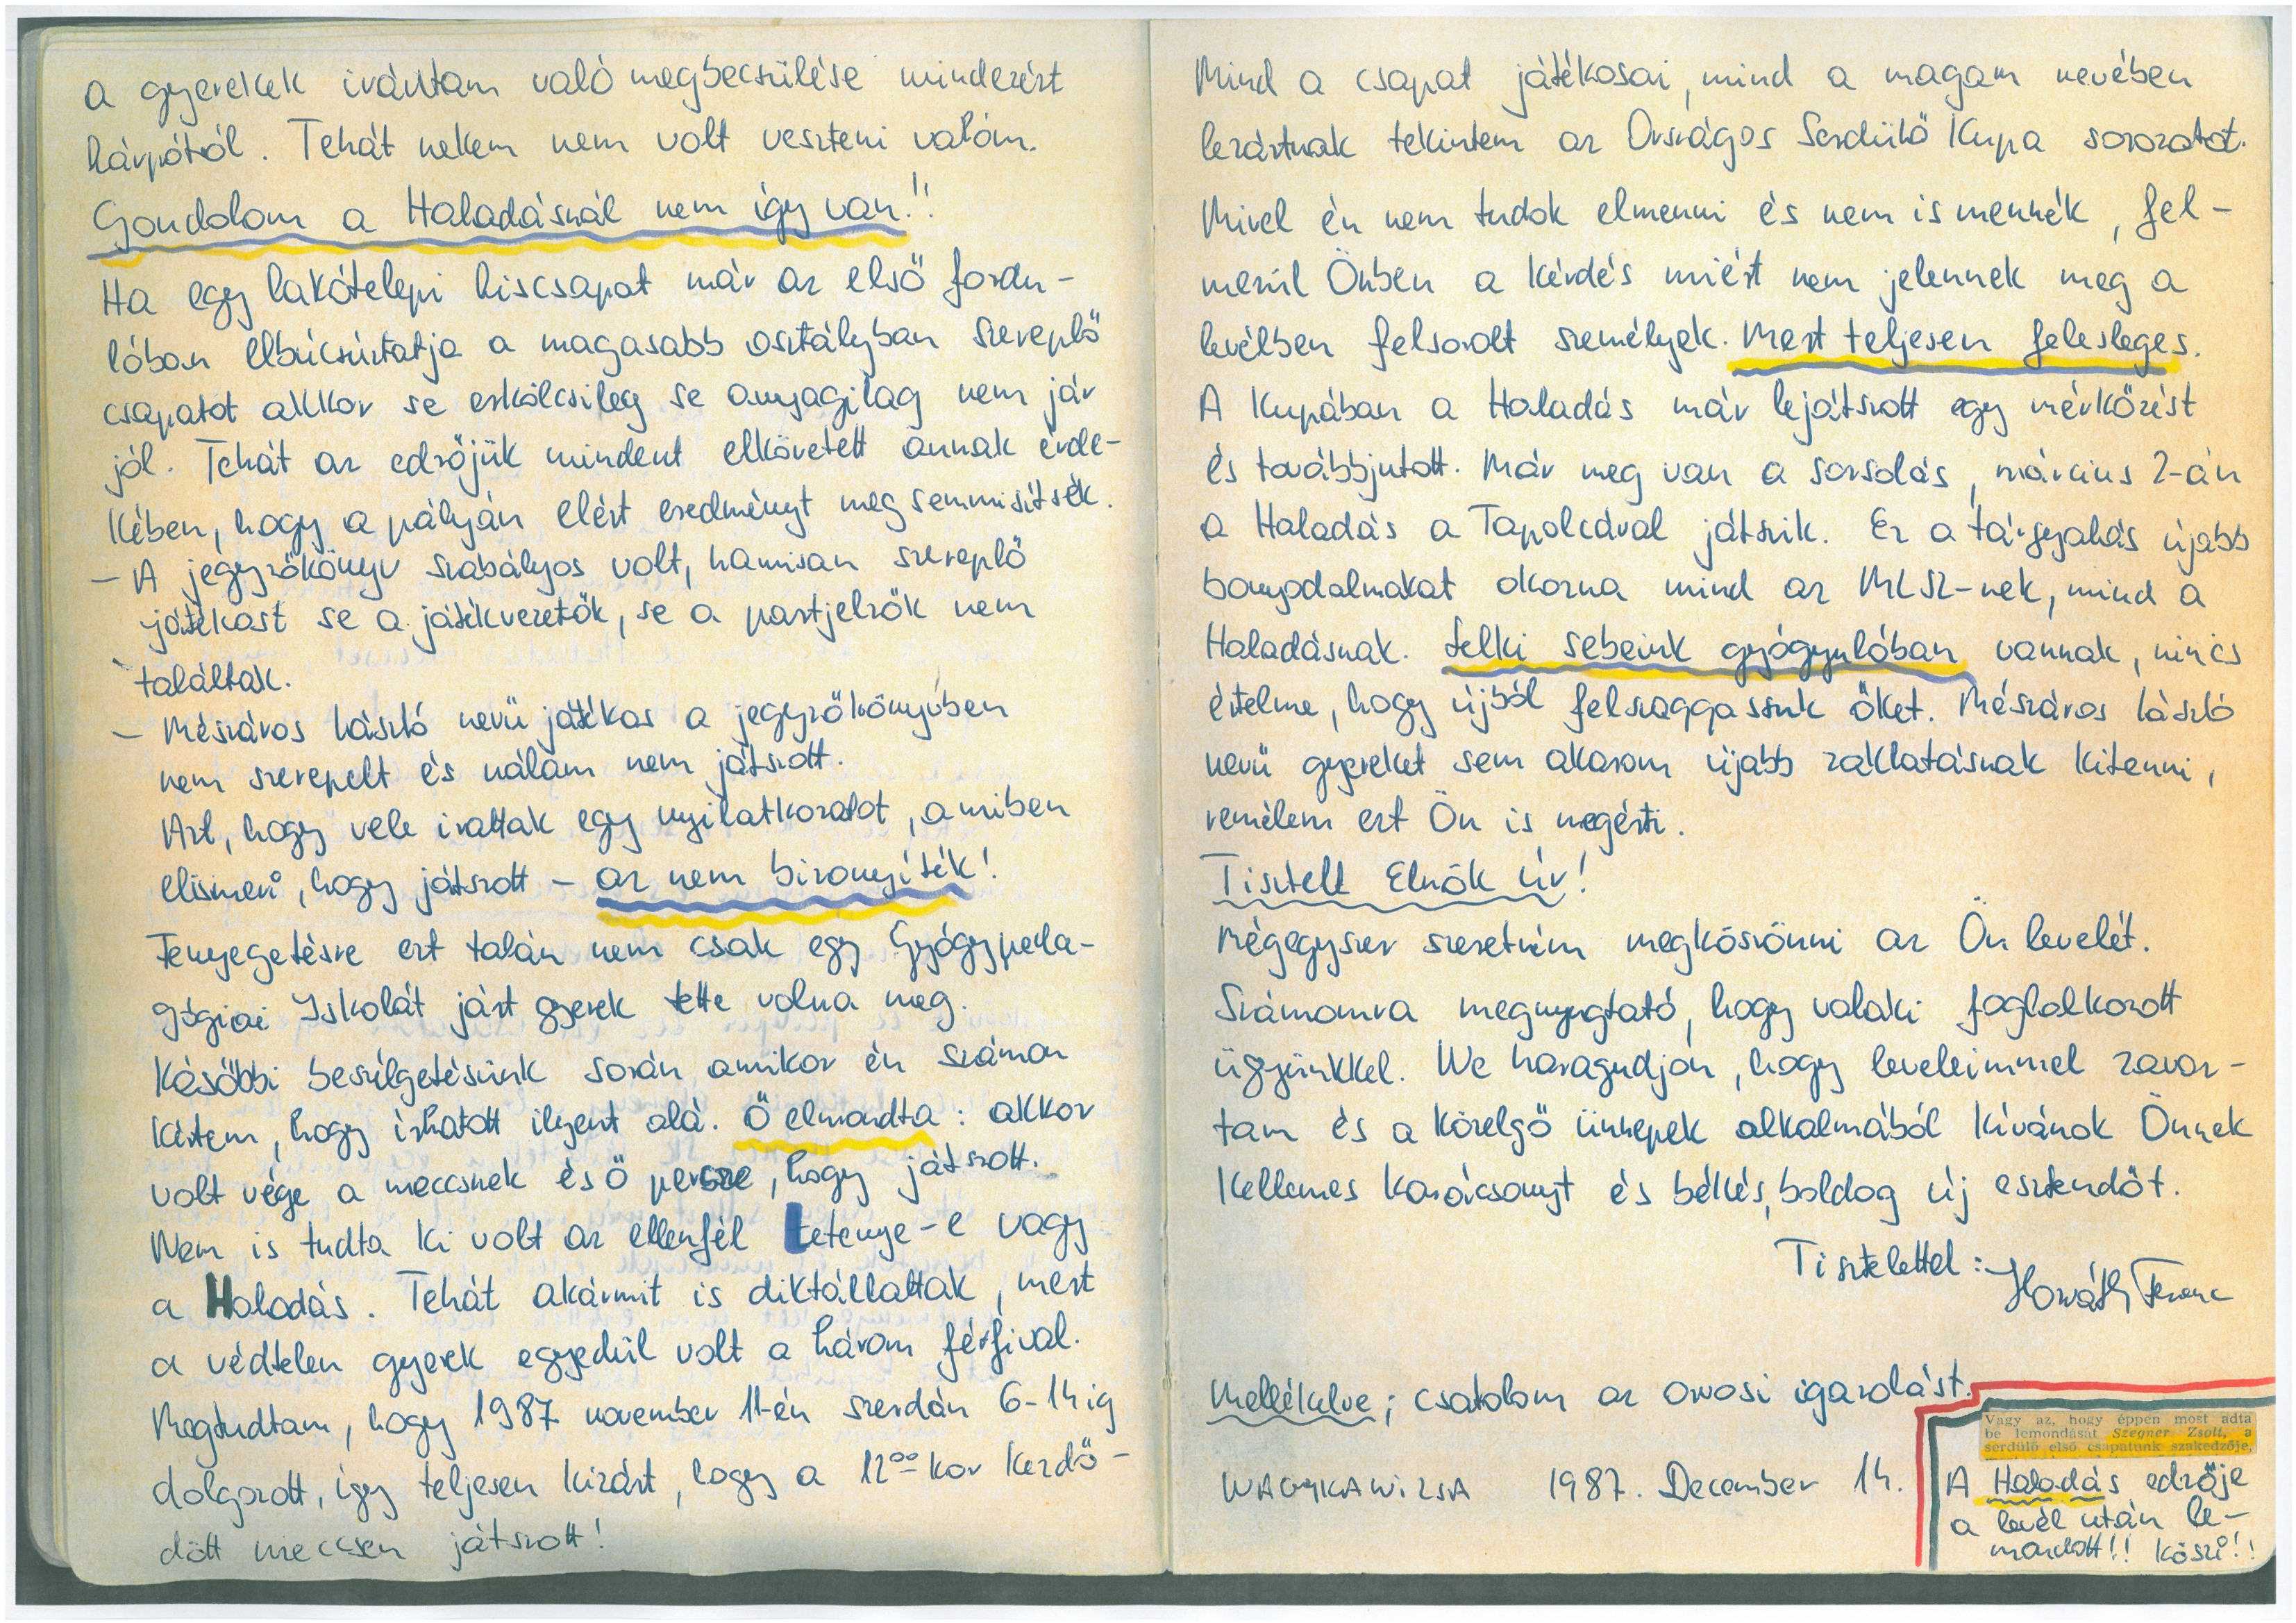 a gyerekek irántam való megbecsülése mindezért
kárpótol. Tehát nekem nem volt veszteni valóm.
Gondolom a Haladásnál nem így van!!
Ha egy lakótelepi kiscsapat már az első fordu-
lóban elbúcsúztatja a magasabb osztályban szereplő
csapatot akkor se erkölcsileg se anyagilag nem jár
jól. Tehát az edzőjük mindent elkövetett annak érde-
kében, hogy a pályán elért eredményt megsemmisítsék.
– A jegyzőkönyv szabályos volt, hamisan szereplő
játékost se a játékvezetők, se a partjelzők nem
találtak.
– Mészáros László nevü játékos a jegyzőkönyvben
nem szerepelt és nálam nem játszott.
Azt, hogy vele irattak egy nyilatkozatot, amiben
elismeri, hogy játszott – az nem bizonyíték!
Fenyegetésre ezt talán nem csak egy Gyógypeda-
gógiai Iskolát járt gyerek tette volna meg.
Későbbi beszélgetésünk során amikor én számon
kértem, hogy írhatott ilyent alá. Ő elmondta: akkor
volt vége a meccsnek és ő persze, hogy játszott.
Nem is tudta ki volt az ellenfél Letenye-e vagy
a Haladás. Tehát akármit is diktálhattak, mert
a védtelen gyerek egyedül volt a három férfival.
Megtudtam, hogy 1987 november 11-én szerdán 6-14 ig
dolgozott, így teljesen kizárt, hogy a 12⁰⁰ kor kezdő-
dött meccsen játszott!
Mind a csapat játékosai, mind a magam nevében
lezártnak tekintem az Országos Serdülő Kupa sorozatot.
Mivel én nem tudok elmenni és nem is mennék, fel-
merül Önben a kérdés miért nem jelennek meg a
levélben felsorolt személyek. Mert teljesen felesleges.
A Kupában a Haladás már lejátszott egy mérkőzést
és továbbjutott. Már meg van a sorsolás, március 2-án
a Haladás a Tapolcával játszik. Ez a tárgyalás újabb
bonyodalmakat okozna mind az MLSZ-nek, mind a
Haladásnak. Lelki sebeink gyógyulóban vannak, nincs
értelme, hogy újból felszaggassuk őket. Mészáros László
nevü gyereket sem akarom újabb zaklatásnak kitenni,
remélem ezt Ön is megérti.
Tisztelt Elnök Úr!
Mégegyszer szeretném megköszönni az Ön levelét.
Számomra megnyugtató, hogy valaki foglalkozott
ügyünkkel. Ne haragudjon, hogy leveleimmel zavar-
tam és a közelgő ünnepek alkalmából kívánok Önnek
kellemes karácsonyt és békés, boldog új esztendőt.
Tisztelettel:
Horváth Ferenc
Mellékelve; csatolom az orvosi igazolást.
NAGYKANIZSA 1987. December 14.
Vagy az, hogy éppen most adta
be lemondását Szegner Zsolt, a
serdülő első csapatunk szakedzője,
A Haladás edzője
a levél után le-
mondott!! Köszi!!